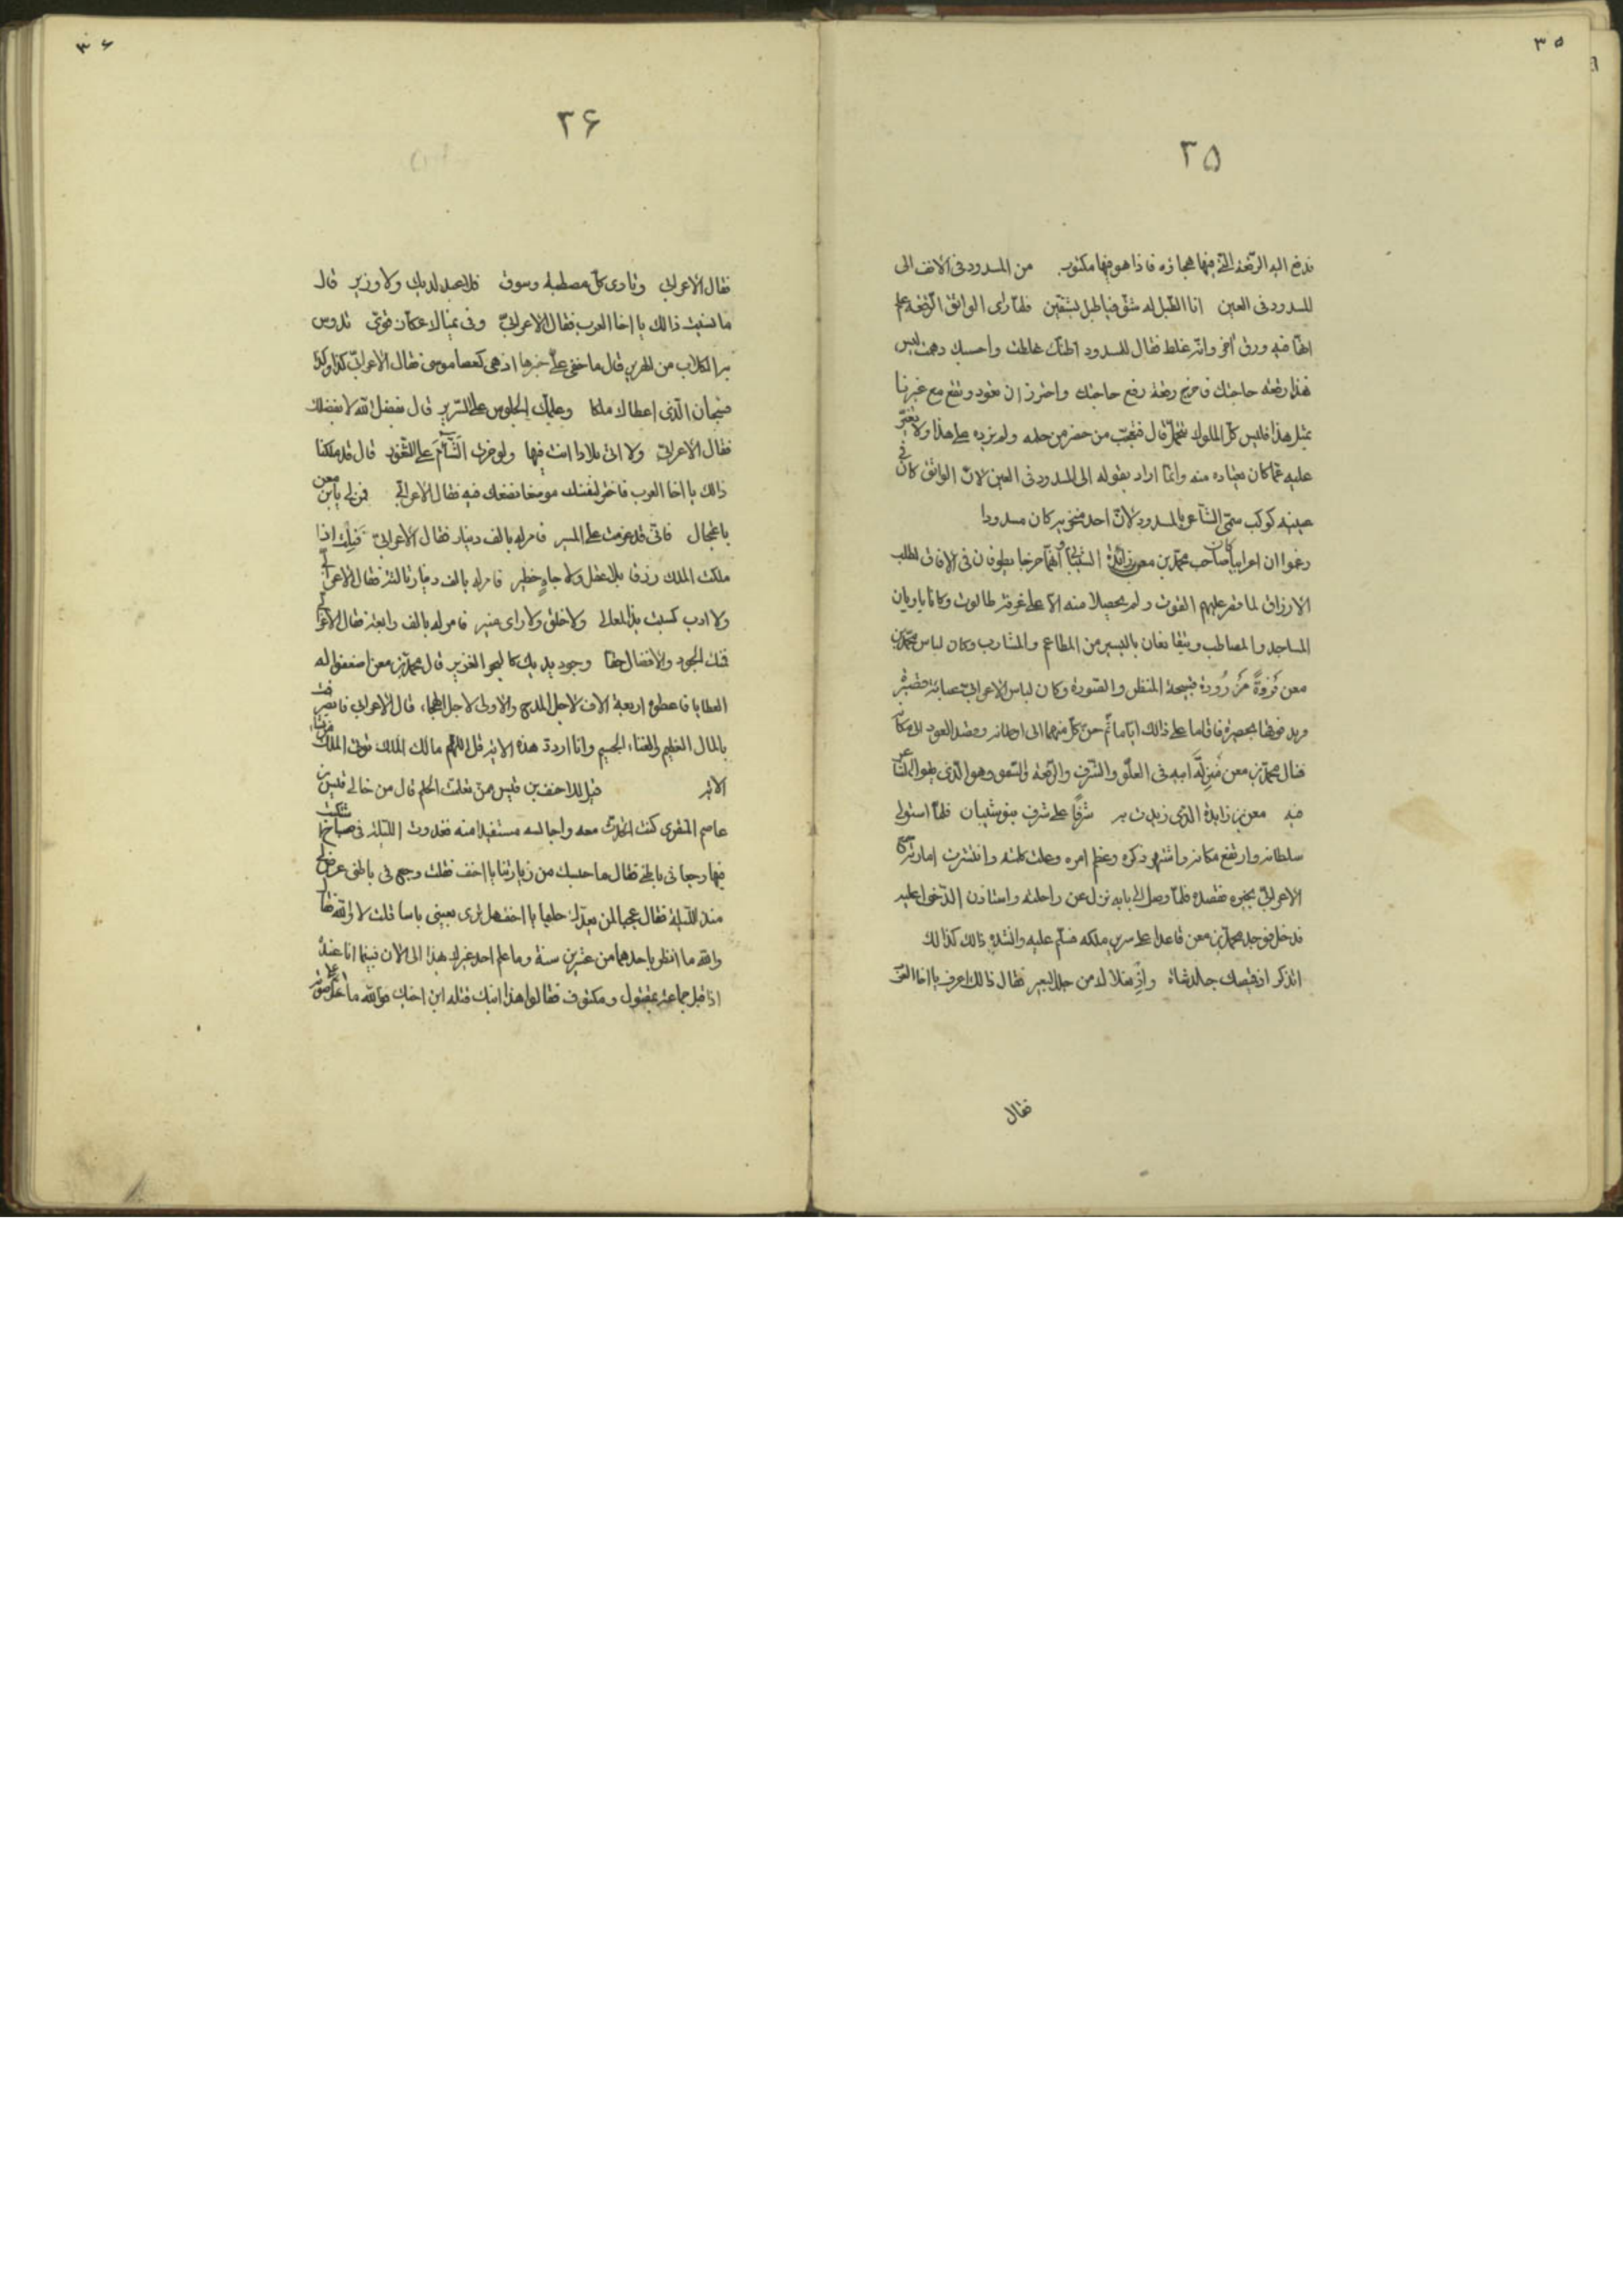 ٣٥
٢٥
فدفع اليه الرقعة التي فيها هجاؤه فاذا هو فيها مكتوب من المسدود في الانف الى
المسدود في العين انا الطبل له شق فيا طبل بشقين فلما راى الواثق الرقعة علم
انها فيه ورق اخر وانه غلط فقال للمسدود اظنك غلطت واحسبك وهمت ليس
هذا رقعة حاجتك فاخرج رقعة رفع حاجتك واحترز ان تعود وتقع مع غيرنا
بمثل هذا فليس كل الملوك يتحمل قال فتعجب من حضر من حلمه ولم يزيده على هذا ولا تغير
عليه عما كان يعتاده منه وانما اراد بقوله الى المسدود في العين لان الواثق كان في
عينيه كوكب سمى الشاعر بالمسدود لان احد منخريه كان مسدودا
زعموا ان اعرابيا كان صاحب محمد بن معن بن زائدة الشيباني وانهما خرجا يطوفان في الافاق لطلب
الارزاق لما قتر عليهم القوت ولم يحصلا منه الا على غرفة طالوت وكانا ياويان
المساجد والمصاطب ويتقانعان باليسير من المطاعم والمشارب وكان لباس محمد بن
معن فروة مزرورة قبيحة المنظر والصورة وكان لباس الاعرابي عبائة قصيرة
وبه فوطها بحصيرة فاقاما على ذلك اياما ثم حن كل منهما الى اوطانه وقصد العود الى مكانه
فنال محمد بن معن منزلة ابيه في العلو والشرف والرفعة والسمو وهو الذي يقول الشاعر
فيه معن بن زايدة الذي زيدت به شرفا على شرف بنو شيبان فلما استولى
سلطانه وارتفع مكانه واشتهر ذكره وعظم امره وعلت كلمته وانتشرت امارته سمع
الاعرابي بخبره فقصده فلما وصل الى بابه نزل عن راحلته واستاذن الدخول عليه
فدخل فوجد محمد بن معن قاعدا على سرير ملكه فسلم عليه وانشده ذالك كذا لك
اتذكر اذ قميصك جلد شاة واذ نعلاك من جلد البعير فقال ذالك اعرف يا اخا العرب
فقال
٣۶
٢۶
فقال الاعرابي وتاوى كل مصطبة وسوق فلا عبد لديك ولا وزير قال
ما نسيت ذالك يا اخا العرب فقال الاعرابي وفي يمناك عكاز قوي تذود
به الكلاب عن الهرير قال ما خفى علي خبرها اذ هي كعصا موسى فقال الاعرابي كذا وكذا
فسبحان الذي اعطاك ملكا وعلمك الجلوس على السرير قال بفضل الله لا بفضلك
فقال الاعرابي ولا اتى بلادا انت فيها ولو حزت الشام على الثغور قال قد ملكنا
ذالك يا اخا العرب فاختر لنفسك موضعا نضعك فيه فقال الاعرابي فمن لي يابن معن
باعجال فاني قد عزمت على المسير فامر له بالف دينار فقال الاعرابي قليلك اذا
ملكت الملك رزقا بلا عقل ولا جاه خطير فامر له بالف دينار ثالثة فقال الاعرابي
ولا ادب كسبت به المعالي ولا خلق ولا راى منير فامر له بالف رابعة فقال الاعرابي
فمنك الجود والافضال حقا وجود يديك كالبحر الغزير قال محمد بن معن اضعفوا له
العطايا فاعطوه اربعة الاف لاجل المدح والاولى لاجل الهجاء، قال الاعرابي فانصرفت
بالمال العظيم والغناء الجسيم وانا اردد هذه الاية قل اللهم مالك الملك تؤتي الملك من تشاء
الاية قيل للاحنف بن قيس ممن تعلمت الحلم قال من خالي قيس بن
عاصم المنقري كنت اتحدث معه واجالسه مستفيدا منه فغدوت الليلة في صباح شكيت
فيها وجعا في باطني فقال ما حبسك من زيارتنا يا احنف فقلت وجع في باطني عرض لي
منذ الليلة فقال عجبا لمن يعدك حليما يا احنف هل ترى بعيني باسا قلت لا والله فقال
والله ما انظر باحدهما من عشرين سنة وما علم احد غيرك بهذا الى الان فبينما انا عنده
اذا قبل جماعة بمقتول ومكتوف فقالوا هذا ابنك قتله ابن اخيك فوالله ما علا صوته